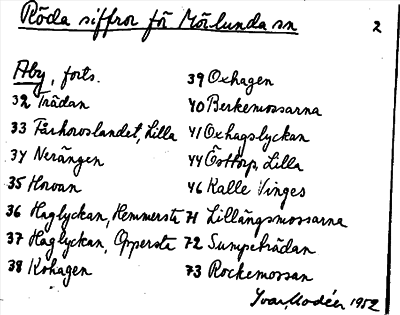 Röda siffror på Mörlunda sn
2
Åby, forts.
32 Trädan
33 Fårhovslandet, Lilla
34 Nerängen
35 Hovan
36 Haglyckan, Hemmerste
37 Haglyckan, Opperste
38 Kohagen
39 Oxhagen
40 Berkemossarna
41 Oxhagslyckan
44 Östtorp, Lilla
46 Kalle Vinges
71 Lillängsmossarna
72 Sumpeträdan
73 Rockemossan
Ivar Modéer 1952